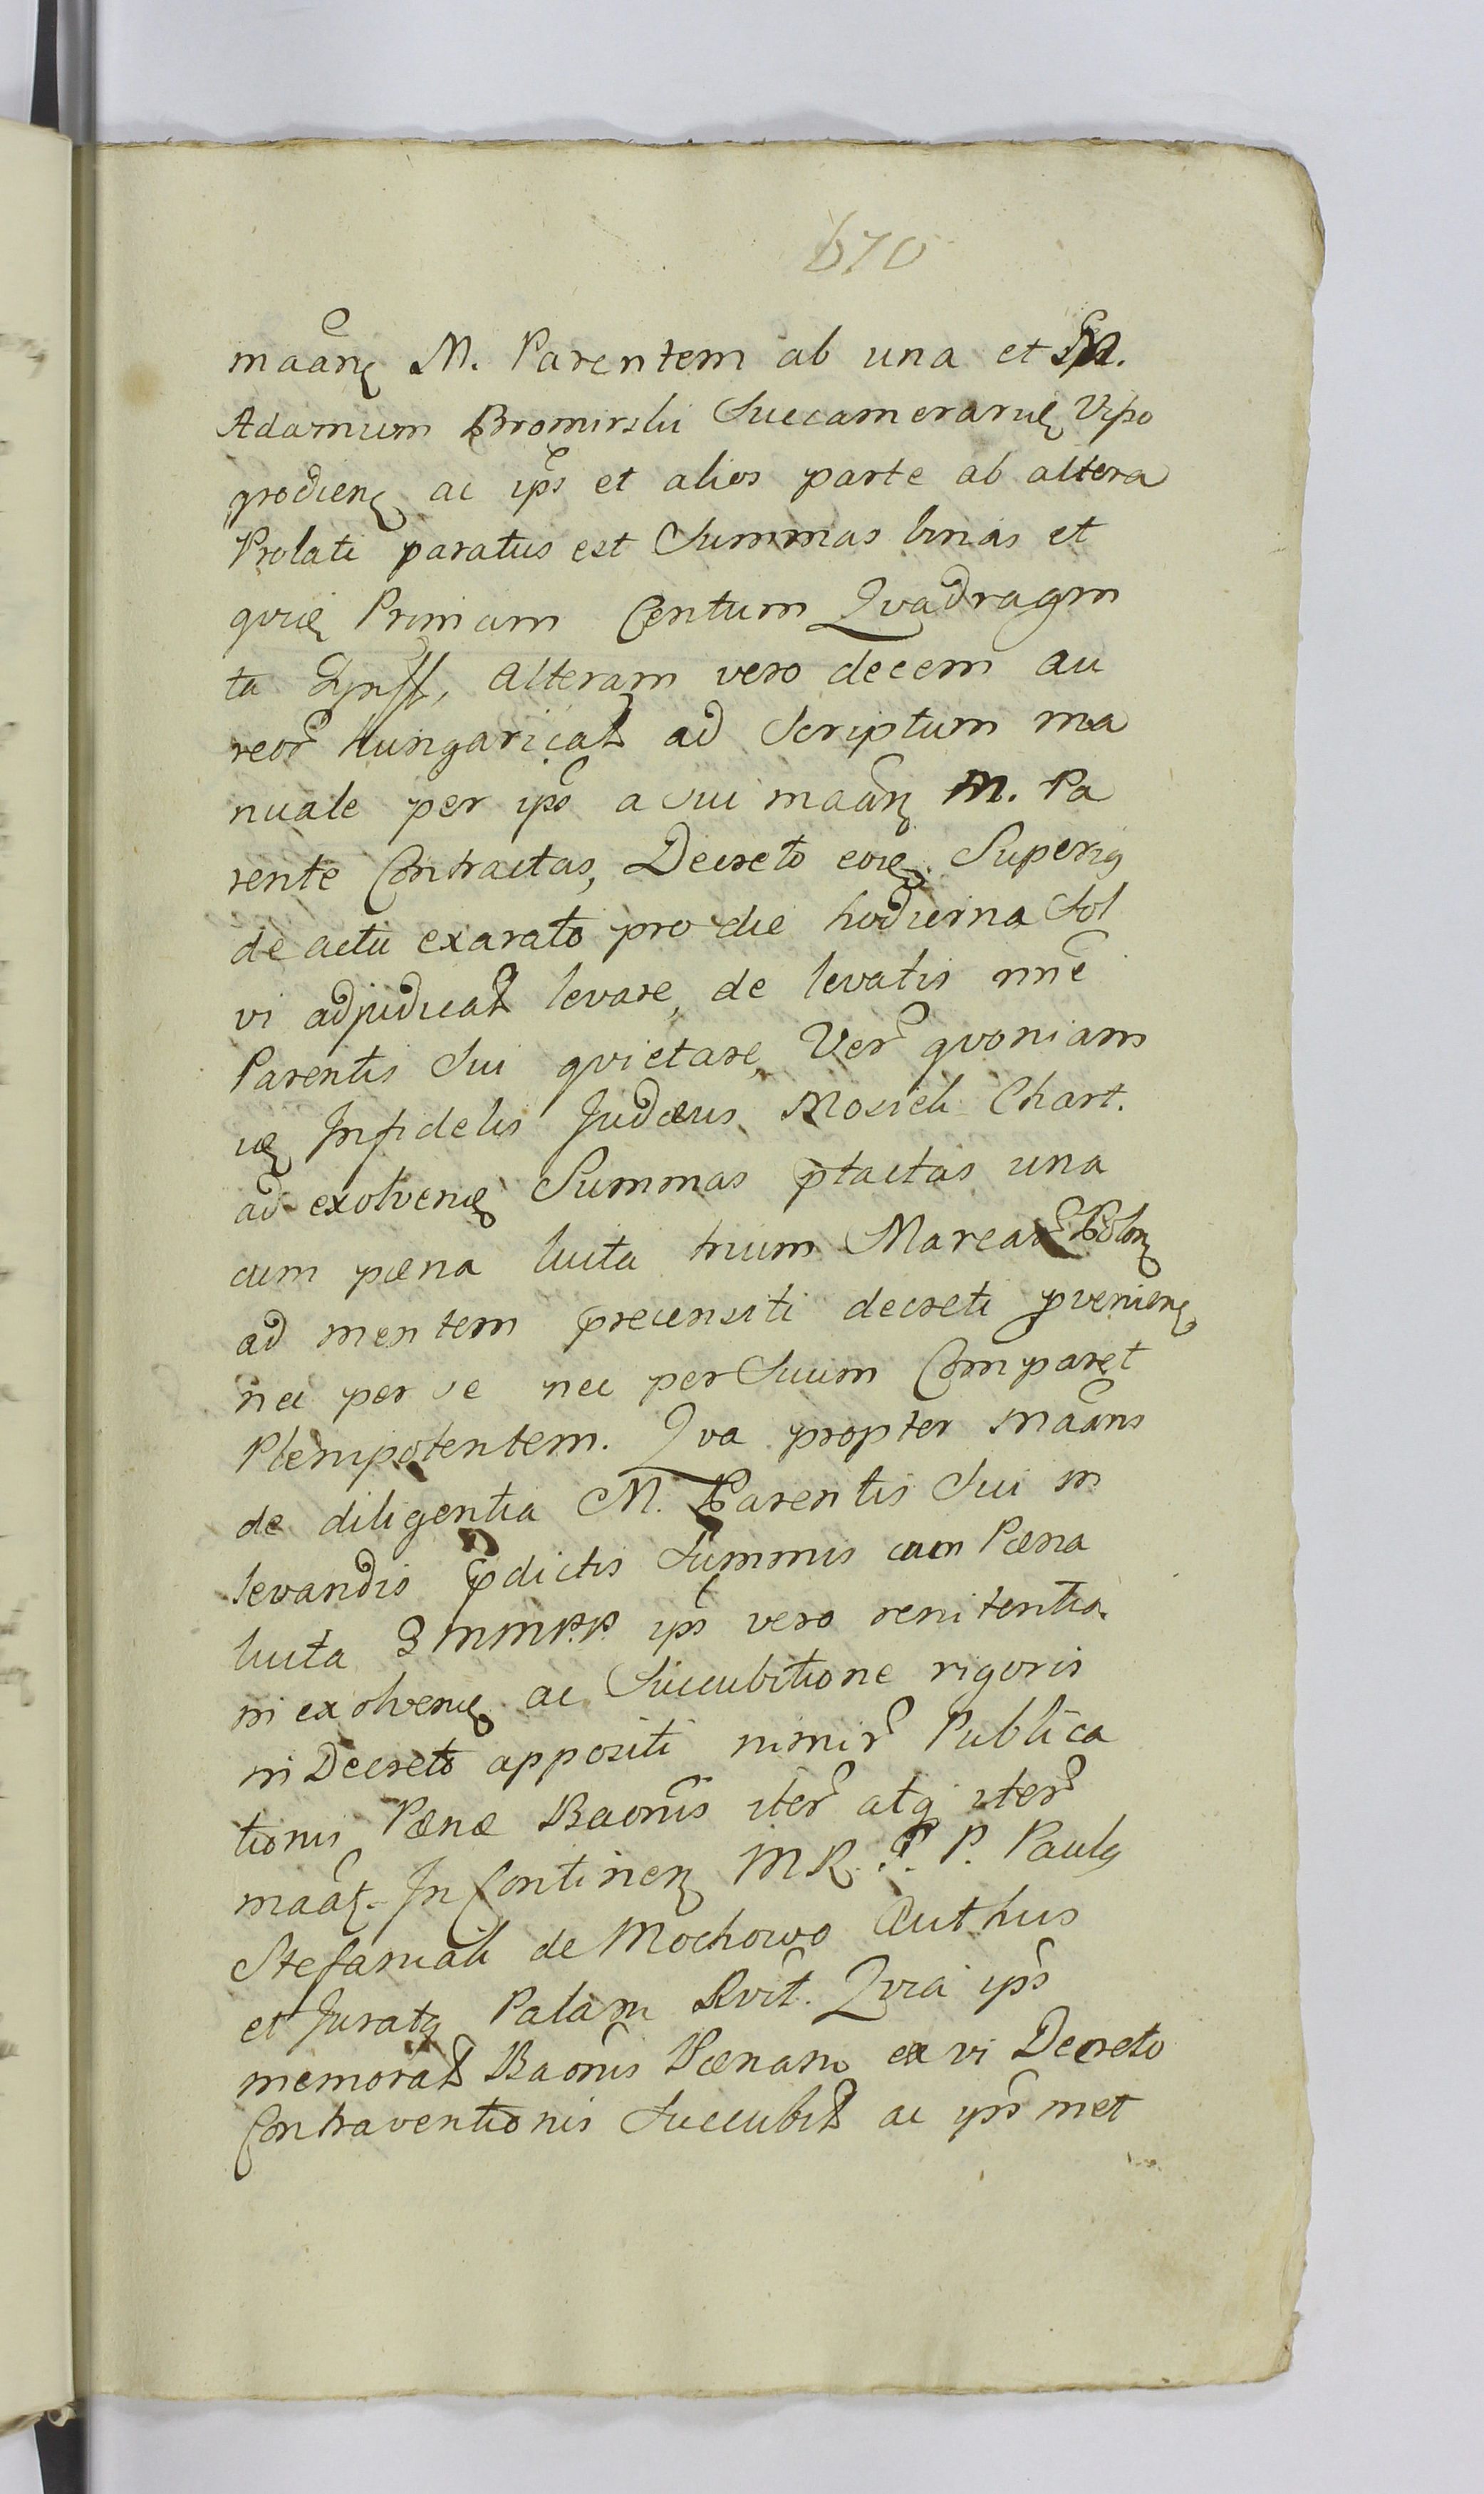 670
maañ M. Parentem ab una et M.
Adamum Bromirski Succamerariũ Viſso
grodien ac ips et alios parte ab altera
Prolati paratus est Summas binas et
qvię Primam Centum Qvadragin
ta Tynff, alteram vero decem au
reor̃ Hungarical ad Scriptum ma
nuale per ips̃ a sui maañ M. Pa
rente Contractas, Decreto eoę Superiq
de actu exarato pro die hodierna Sol
vi adjudicat levare, de levatis nñe
Parentis Sui qvietare, Ver̃ qvoniam
Infidelis Judæus Mosiek Chart.
ad exolvenę Summas ptactas una
cum pœna luita trium Marcar̃ Polon
ad mentem precensiti decreti pvenienę
nec per se nec per Suum Comparet
Plenipotentem. Qva propter maãns
de diligentia M. Parentis Sui in
levandis pdictis Summis cum Pœna
luita 3 MMPP. ips̃ vero renitentia
in exolvenę ac Succubitione rigoris
in Decreto appositi nimir̃ Publica
tionis Pœnæ Baonis̃ iter̃ atq iter̃
maãt. In Continen MR. P. P. Paulq
Stefaniak de Mochowo Authus
et Juratq Palam Rvit. Qvia ips̃
memorat Baonis̃ Pœnam ex vi Decreto
Contraventionis Succubit ac ips̃ met